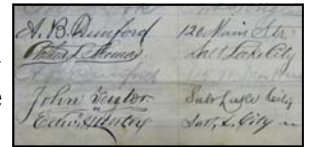 A. B. Dunford 120 Main Str.
Arthur L. Thomas. Salt Lake City
John Taylor. Salt Lake City
Edw. Salt L. City